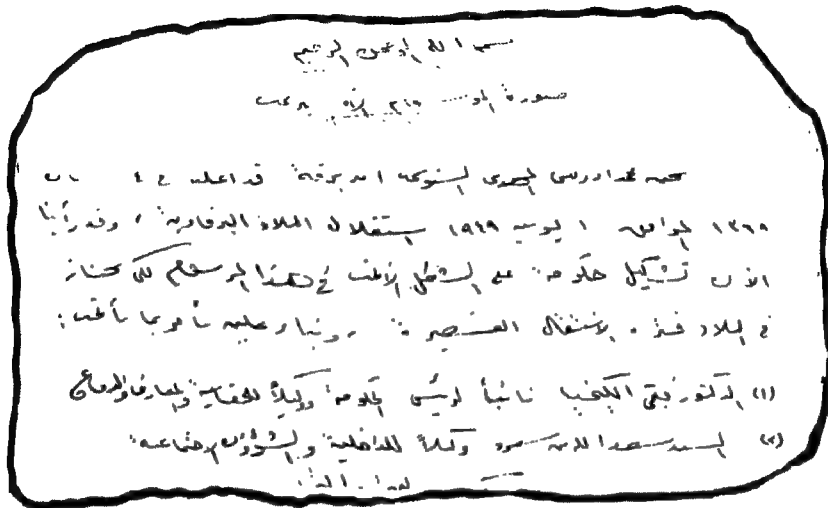 بسم الله الرحمن الرحيم
صورة
نحن محمد ادريس المهدى السنوسى امير برقة قد اعلنا فى ٤
١٣٦٨ الموافق ١ يونيه ١٩٤٩ استقلال البلاد البرقاوية، وقد رأينا
الآن تشكيل حكومة على الشكل الآتى فى هذا المرسوم لكى تجتاز
فى البلاد فترة الانتقال القصيرة، وبناء عليه نأمر بما يأتى:
(١) الدكتور فتحى الكيخيا نائباً لرئيس الحكومة ووكيلاً للحقانية والمعارف والدفاع
(٢) السيد سعد الله بن سعود وكيلاً للداخلية والشؤون الاجتماعية